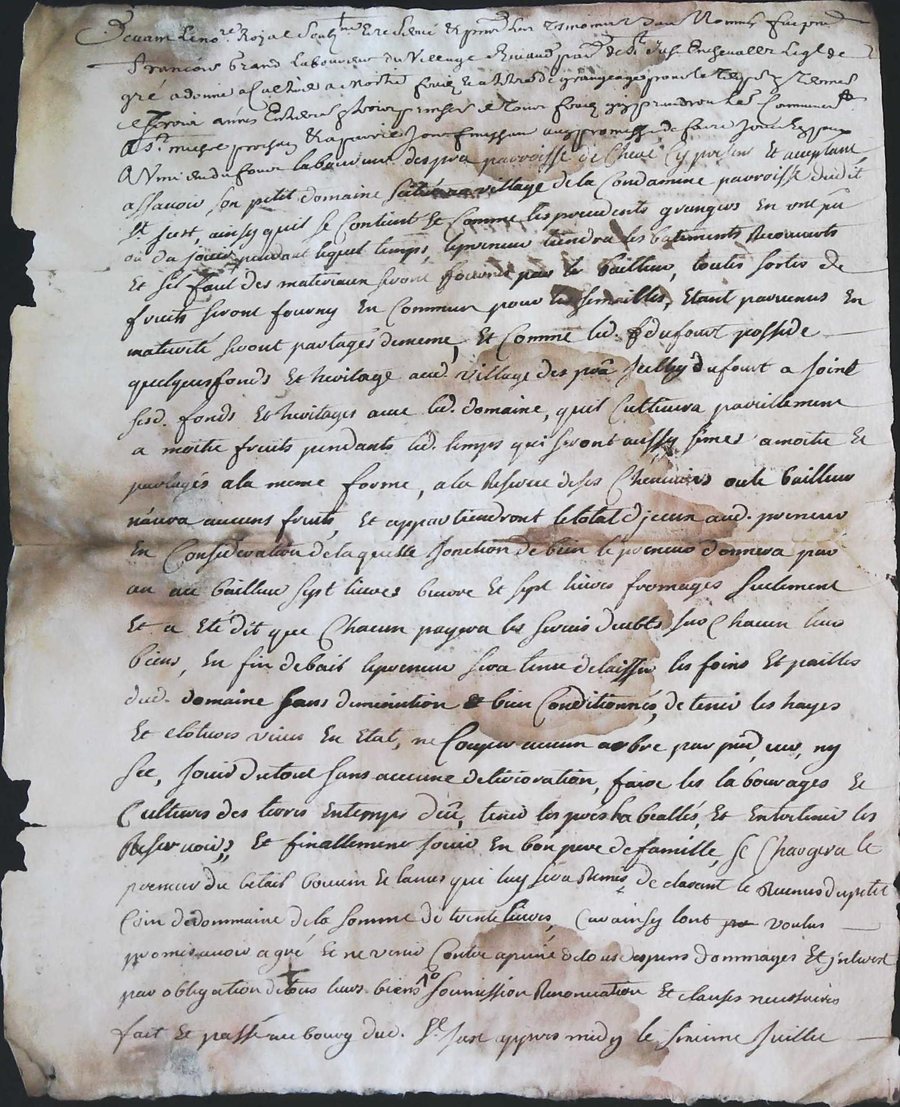 Devant le no.re Royal soub.ne et les tesmoins bas Nommés fut p.nt
François Grand Laboureur du Village
gré a donné a Culture a moitié fruits et a titre de grangeage pour le temps et terme
de trois années Entieres
a St michel prochain et a pareil Jour finissant avec promesse de faire Jouir
a Vmi Dufour laboureur des pra parroisse de Cheré Cy present Et acceptant
assavoir son petit domaine Scitué au village de la Condamine parroisse dudit
St Just, ainsy quil se Contient Et Comme les precedents grangers En ont pu
ou du Jouir pendant lequel temps, le preneur tiendra les batiments Recouverts
Et sil faut des materiaux seront fournis par le bailleur, toutes sortes de
fruits seront fourny En Commun pour les semailles, Etant parvenus En
maturité seront partagés de meme, Et Comme led. Dufourt posside
quelques fonds Et heritage aud. village des pra Icelluy Dufourt a Joint
sesd. fonds Et heritages avec led. domaine, quil Cultivera pareillement
a moitié fruits pendants led. temps qui seront aussy semés a moitié Et
partagés a la meme forme, a la Reserve de ses Chenevirs ou le bailleur
n'aura aucuns fruits, Et appartiendront le total d'iceux aud. preneur
En Consideration de laquelle Jonction de bien le preneur donnera par
an au bailleur sept livres beurre Et sept livres fromages seulement
Et a Eté dit que Chacun payera les servis deubts sur Chacun leur
biens, En fin de bail le preneur sera tenu delaisser les foins Et pailles
dud. domaine sans diminution et bien Conditionnés, de tenir les hayes
Et clotures vives En Etat, ne Couper aucun arbre par pied, vert, ny
sec, Jouir du tout sans aucune deterioration, faire les labourages Et
Cultures des terres En temps dû, tenir les prés habeallés, Et Entretenir les
Reservoirs, Et finallement Jouir En bon pere de famille, se Chargera le
preneur du betail bouvin Et lanus qui luy sera Remis, declarant le Revenus du petit
Coin de dommaine de la somme de trente livres, Car ainsy lont voulus
promis avoir agréé Et ne venir Contre a peine de tous despens dommages Et Interest
par obligation de tous leurs biens soumission Renonciation Et clauses necessaires
fait Et passé au bourg dud. St Just appres midy le sixieme Juillet